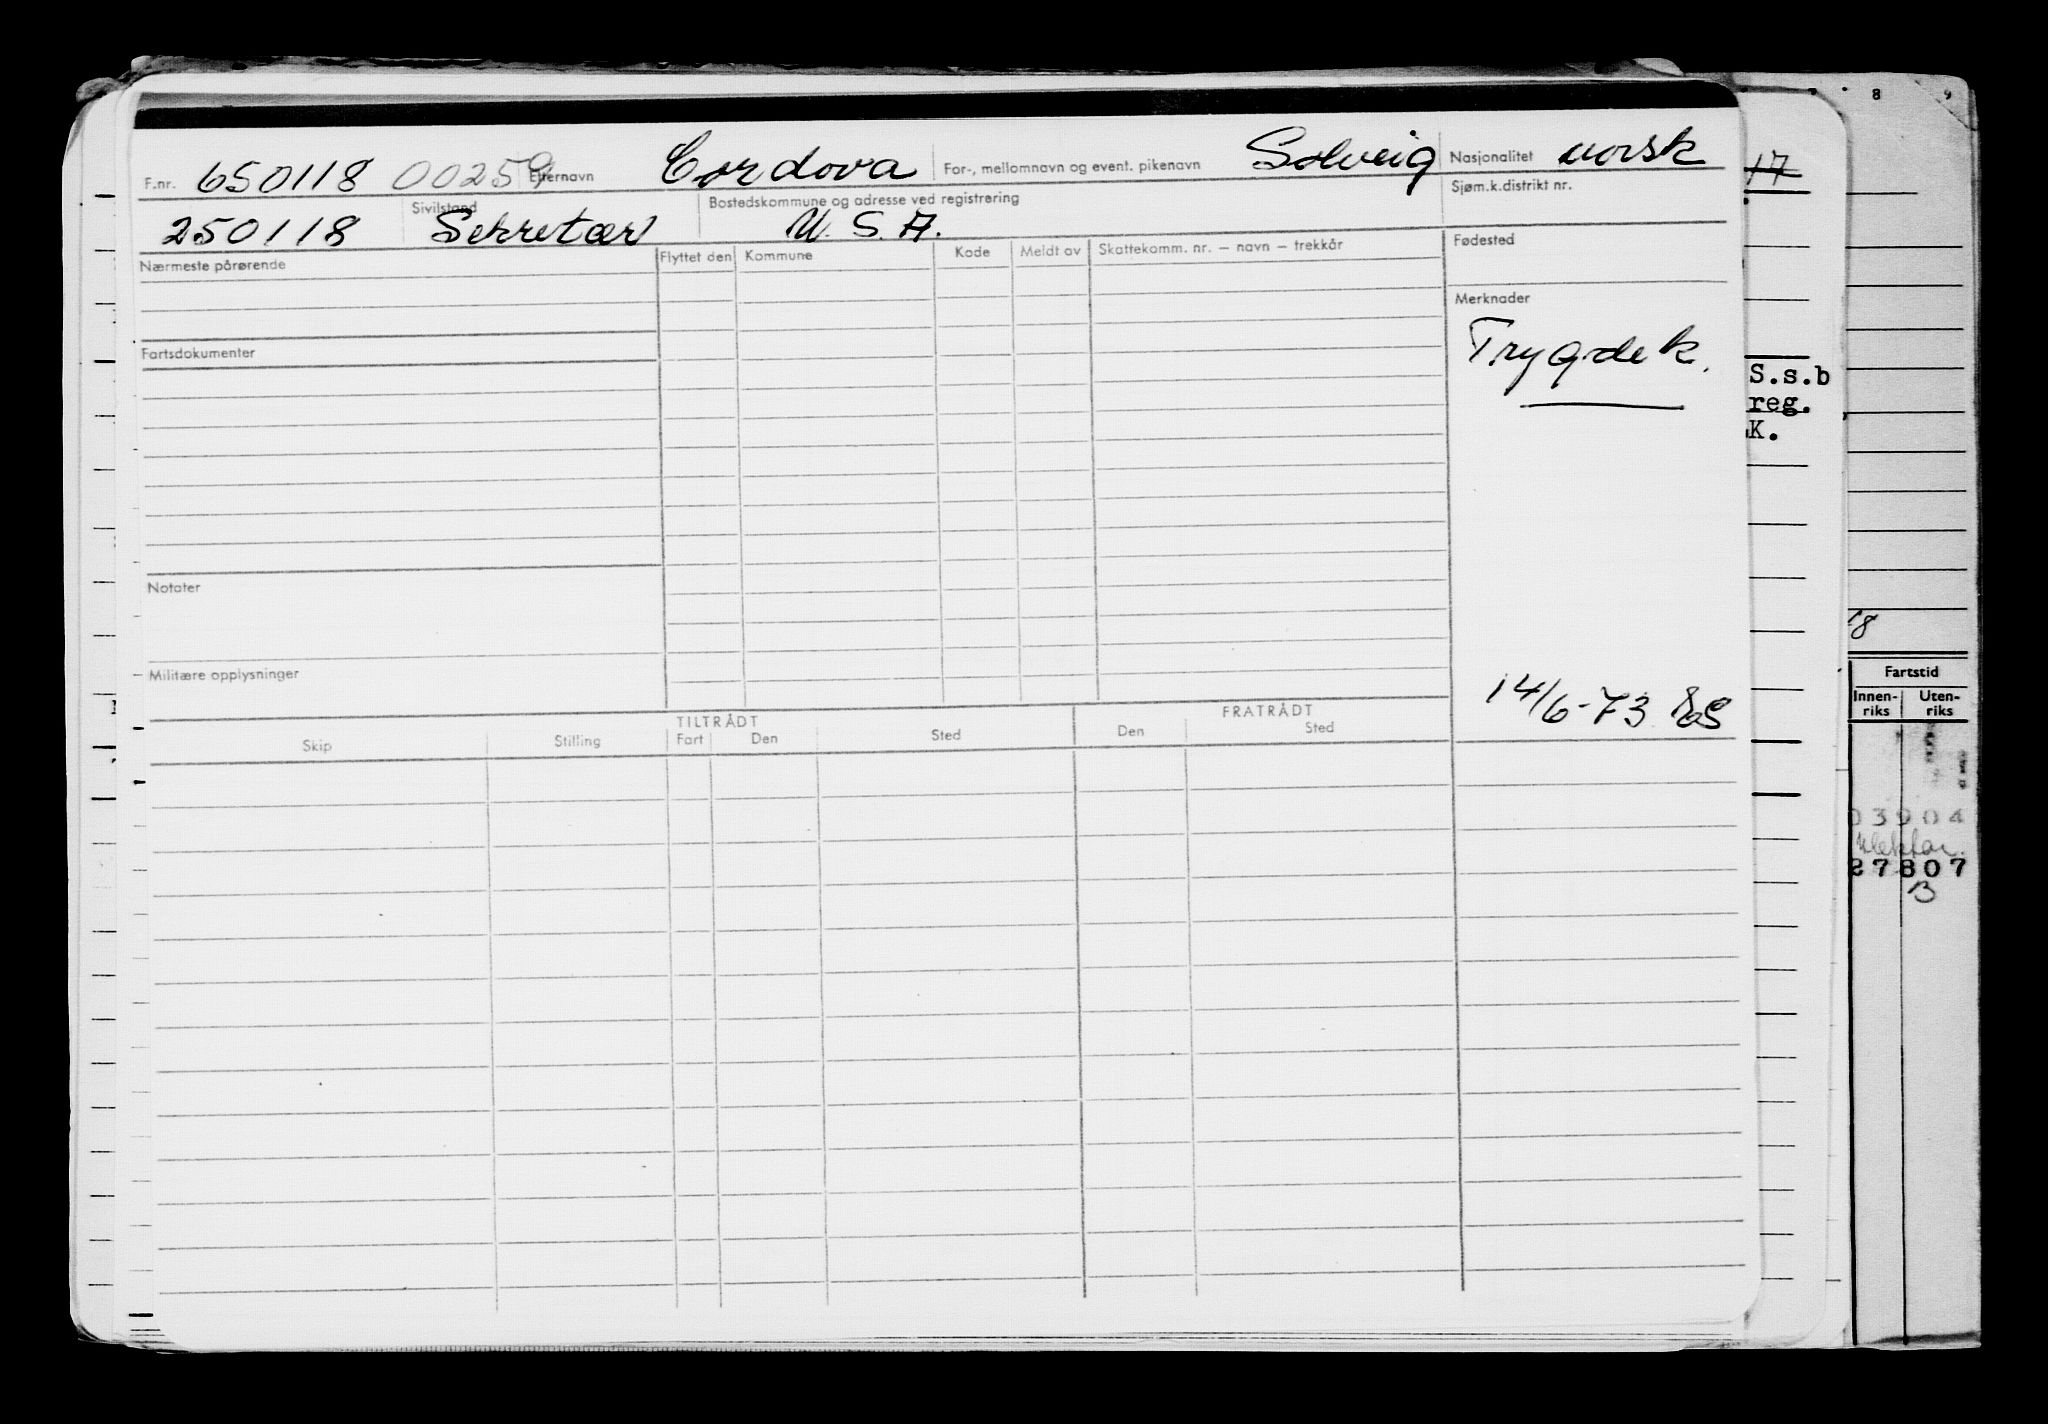 7 8 9
F.nr. 650118 00259 Etternavn Cordova For-, mellomnavn og event. pikenavn Solveig Nasjonalitet norsk
17
Sjøm.k.distrikt nr.
250118 Sivilstand Sekretær Bostedskommune og adresse ved registrering U.S.A.
Nærmeste pårørende Flyttet den Kommune Kode Meldt av Skattekomm. nr. – navn – trekkår Fødested
Merknader
Fartsdokumenter
Trygdek.
S.s.b
reg.
K.
Notater
18
Militære opplysninger
14/6-73
Fartstid
Innen-riks Uten-riks
TILTRÅDT FRATRÅDT
Skip Stilling Fart Den Sted Den Sted
03904
27807
B